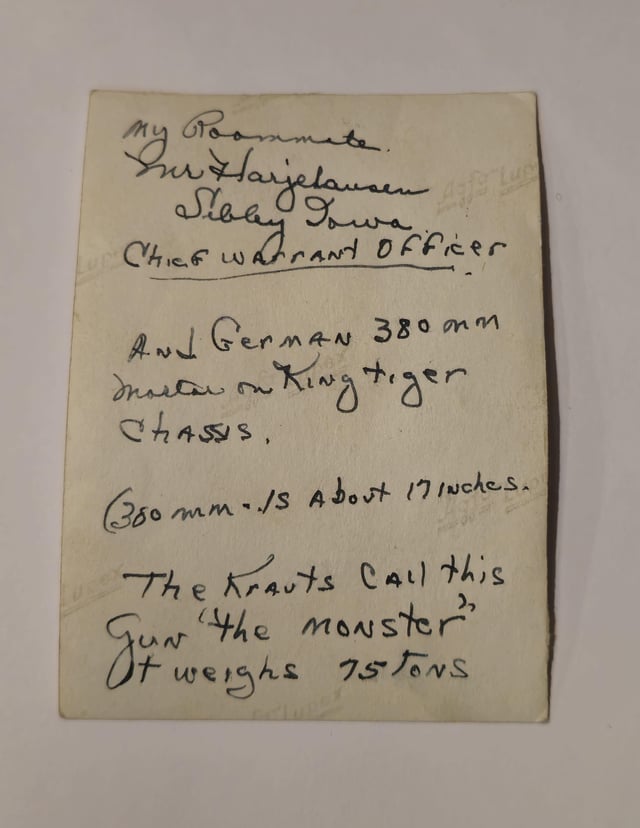 My Roommate.
Mr Harjehausen
Sibley Iowa.
Chief Warrant Officer
And German 380 mm
mortar on King tiger
Chassis.
(380 mm - is about 17 inches.
The Krauts call this
Gun "the monster"
It weighs 75 Tons